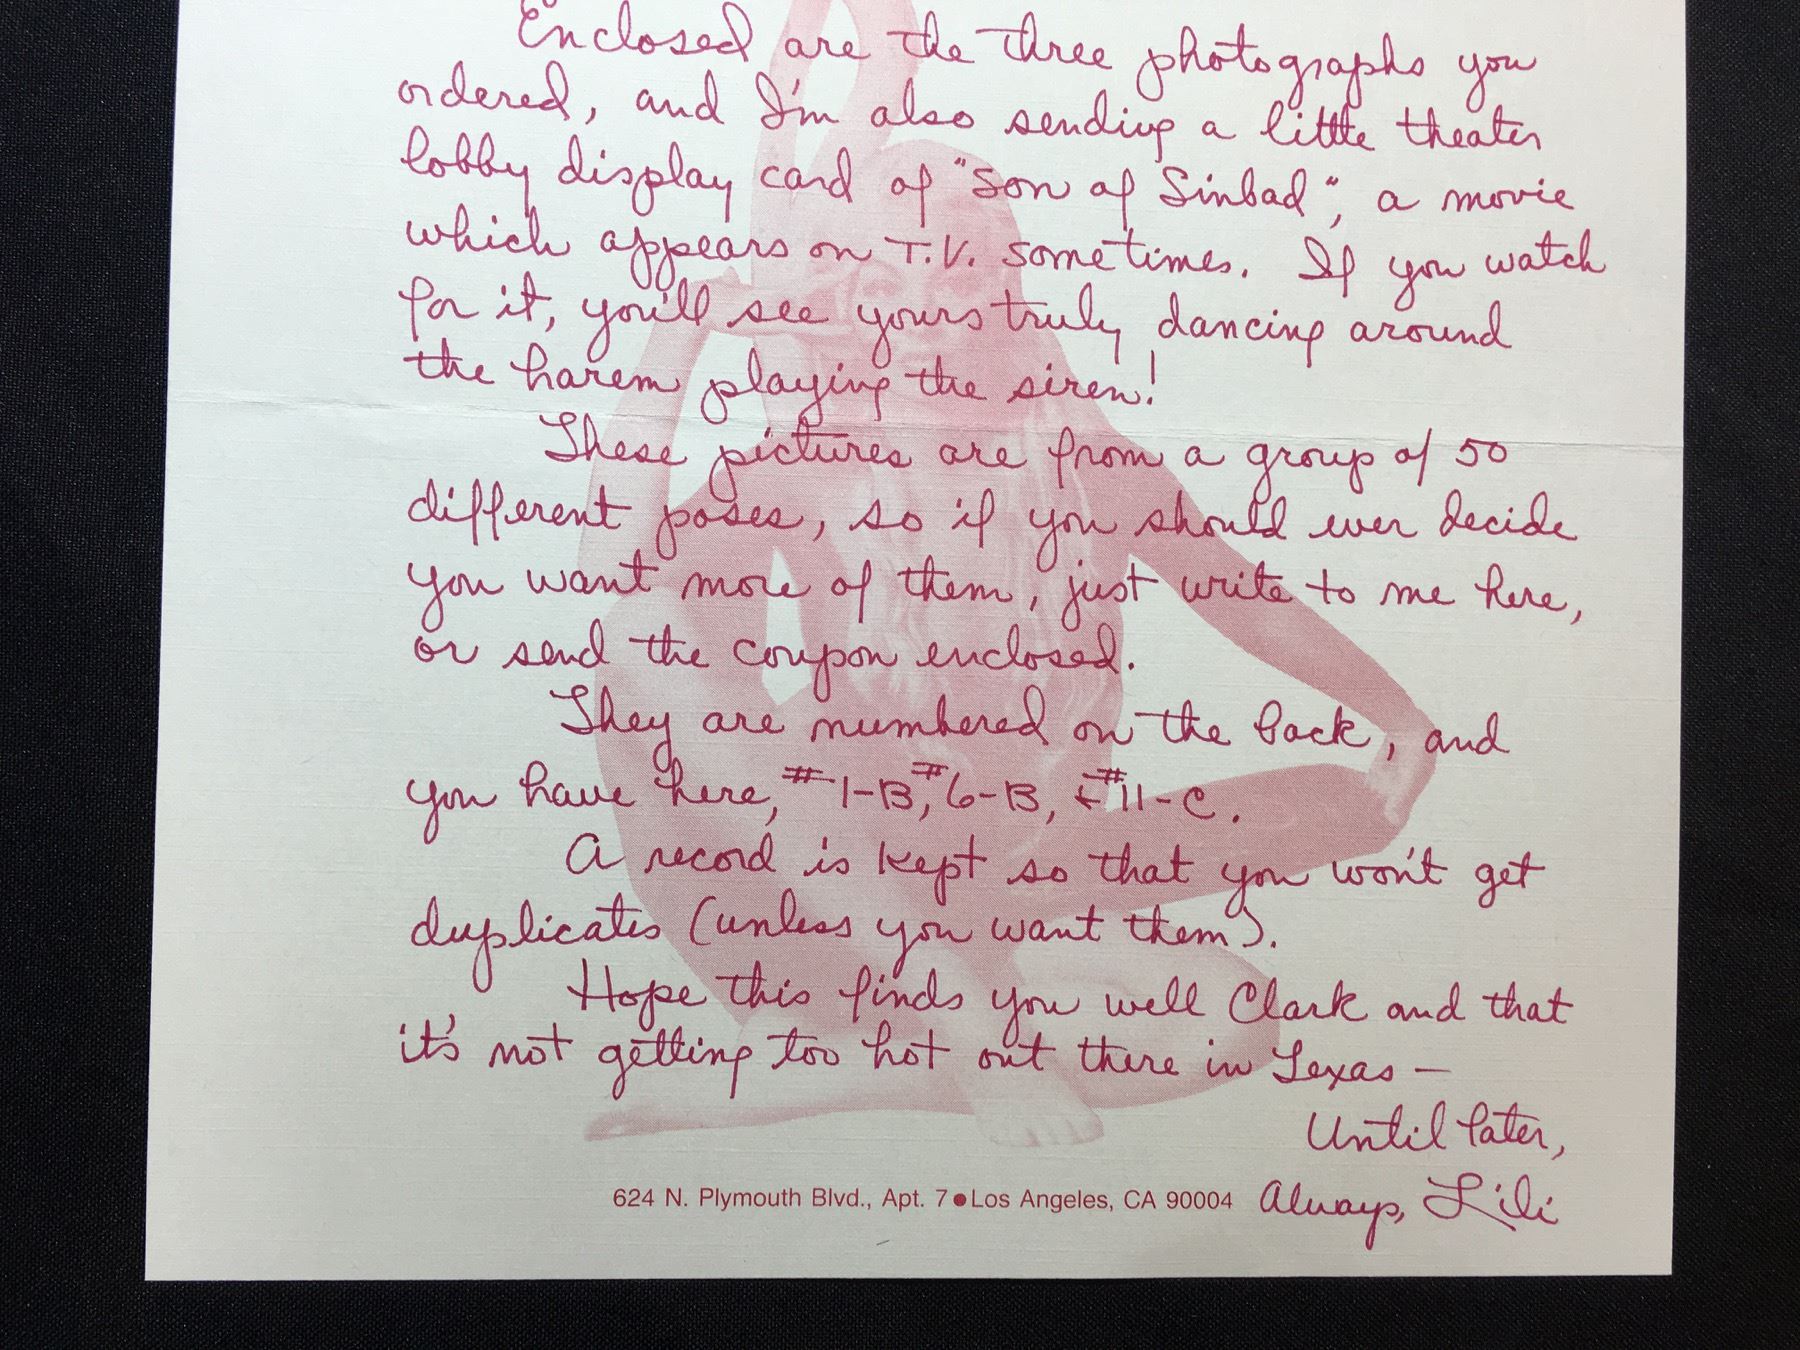 Enclosed are the three photographs you
ordered, and I'm also sending a little theater
lobby display card of "Son of Sinbad", a movie
which appears on T.V. sometimes. If you watch
for it, you'll see yours truly dancing around
the harem playing the siren!
These pictures are from a group of 50
different poses, so if you should ever decide
you want more of them, just write to me here,
or send the coupon enclosed.
They are numbered on the back, and
you have here, #1-B, #6-B, & #11-C.
A record is kept so that you won't get
duplicates (unless you want them).
Hope this finds you well Clark and that
it's not getting too hot out there in Texas —
Until later,
Always, Lili
624 N. Plymouth Blvd., Apt. 7 ● Los Angeles, CA 90004